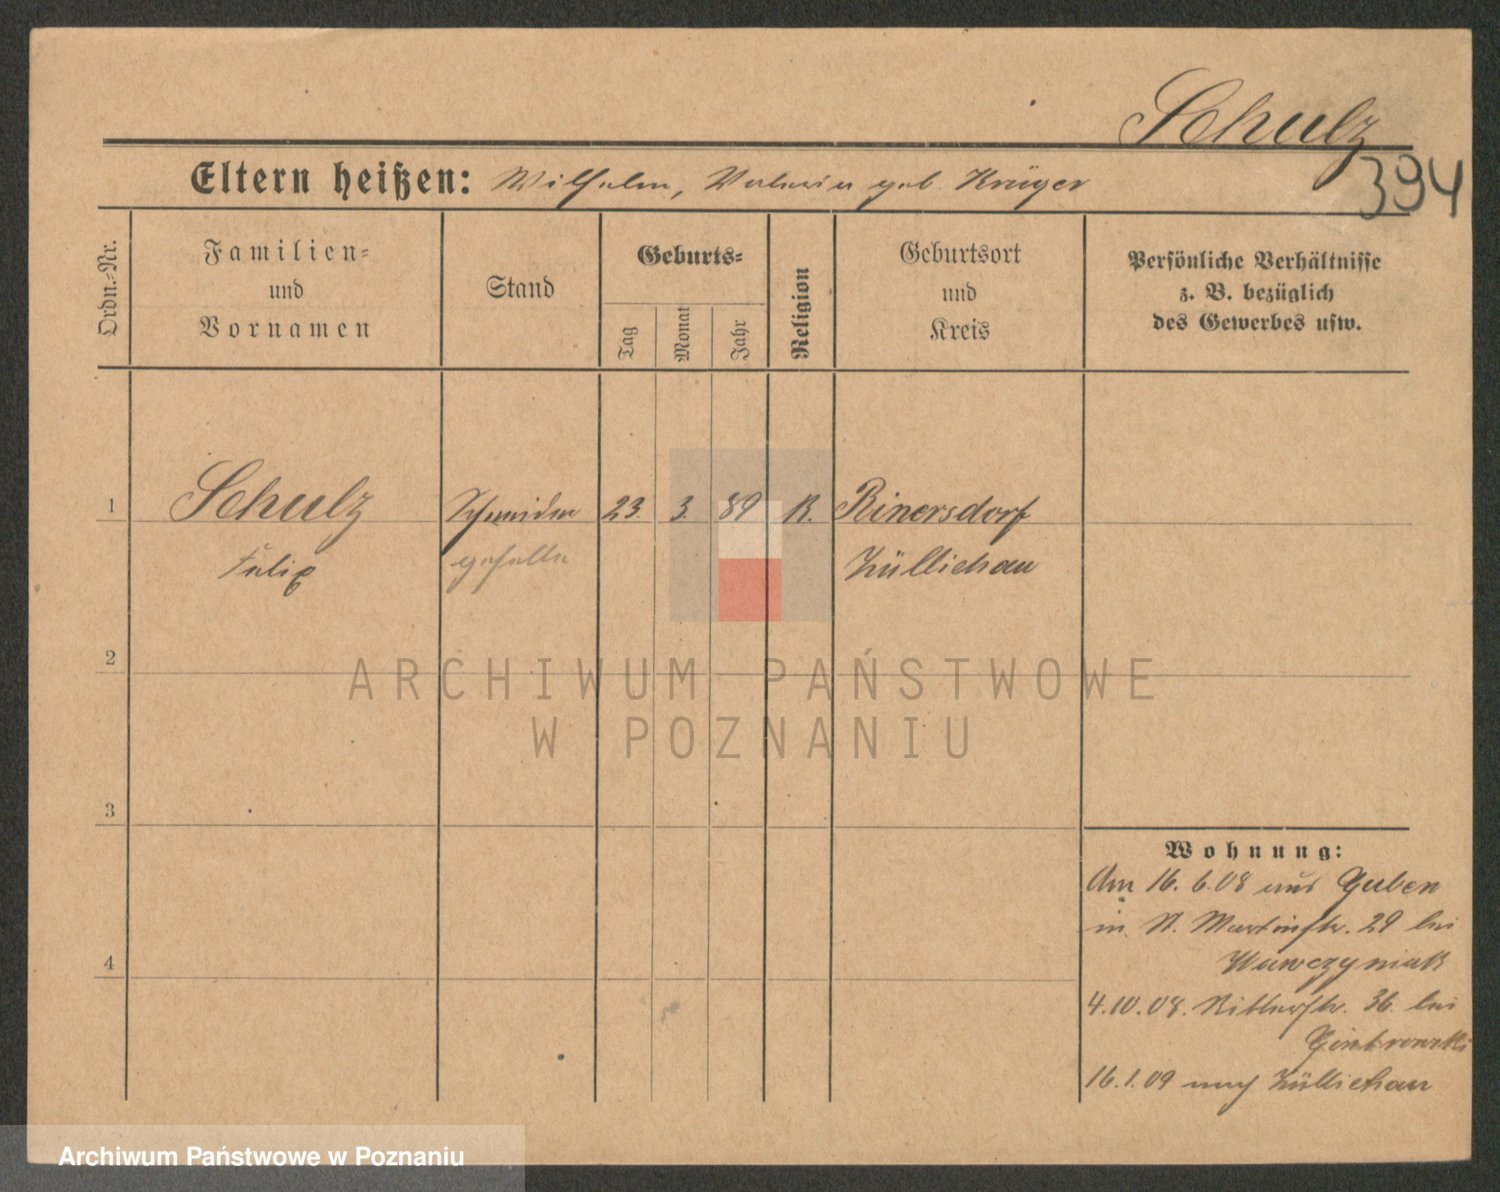 Schulz
394
Eltern heißen: Wilhelm, Valeria geb. Krüger
Ordn.-Nr.
Familien-
und
Vornamen
Stand
Geburts-
Tag
Monat
Jahr
Religion
Geburtsort
und
Kreis
Persönliche Verhältnisse
z. B. bezüglich
des Gewerbes usw.
1
Schulz
Schneider
23.
3.
89
K.
Rinersdorf
geselle
Züllichau
2
3
4
Wohnung:
Am 16. 6. 08 aus Guben
in St. Martinstr. 29 bei
Wawczyniak
4.10.08. Ritterstr. 36. bei
16.1.09 nach Züllichau
ARCHIWUM PAŃSTWOWE
W POZNANIU
Archiwum Państwowe w Poznaniu